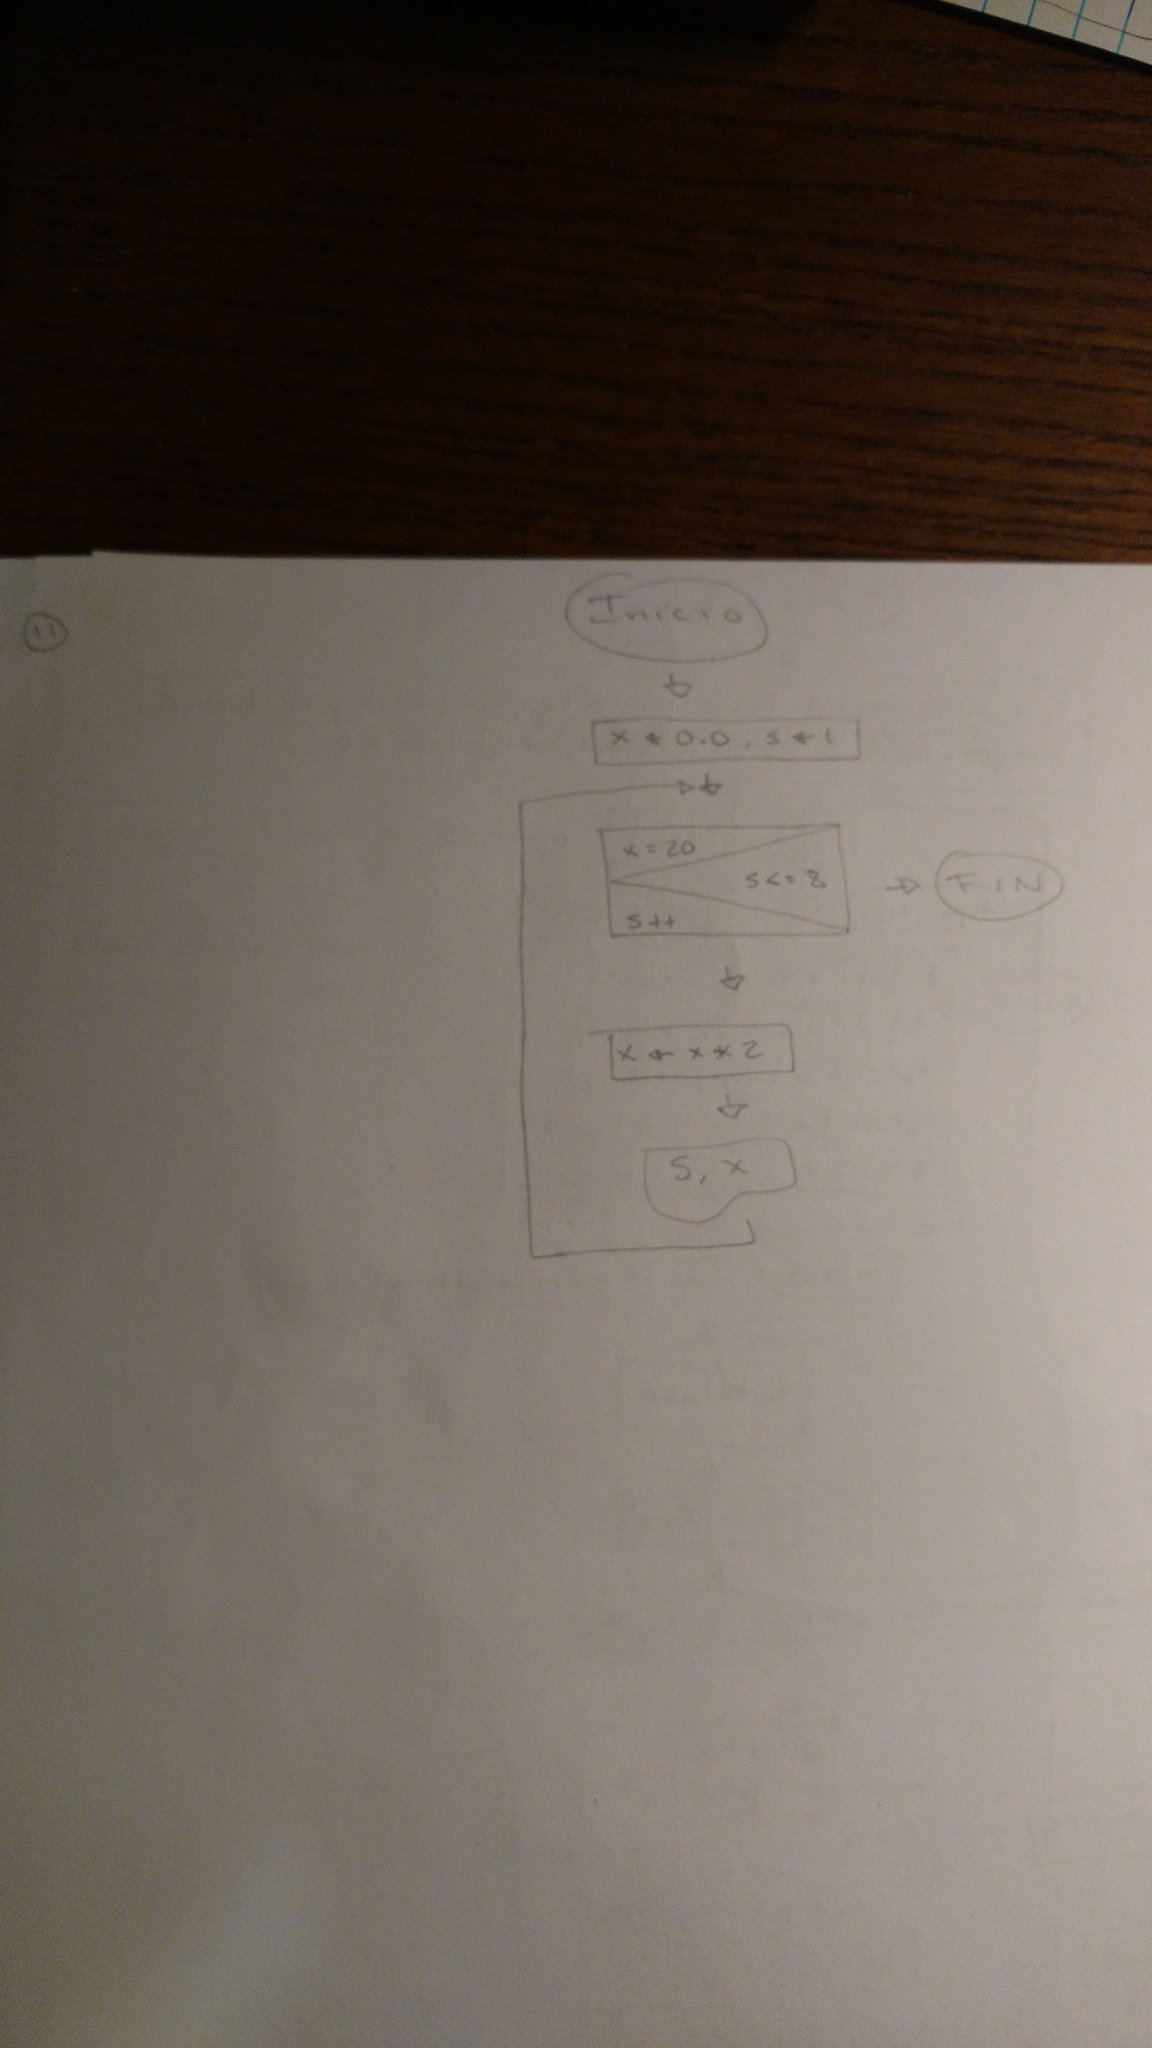 11
Inicio
x ← 0.0, s ← 1
x = 20
s <= 8
s++
FIN
x ← x * 2
s, x